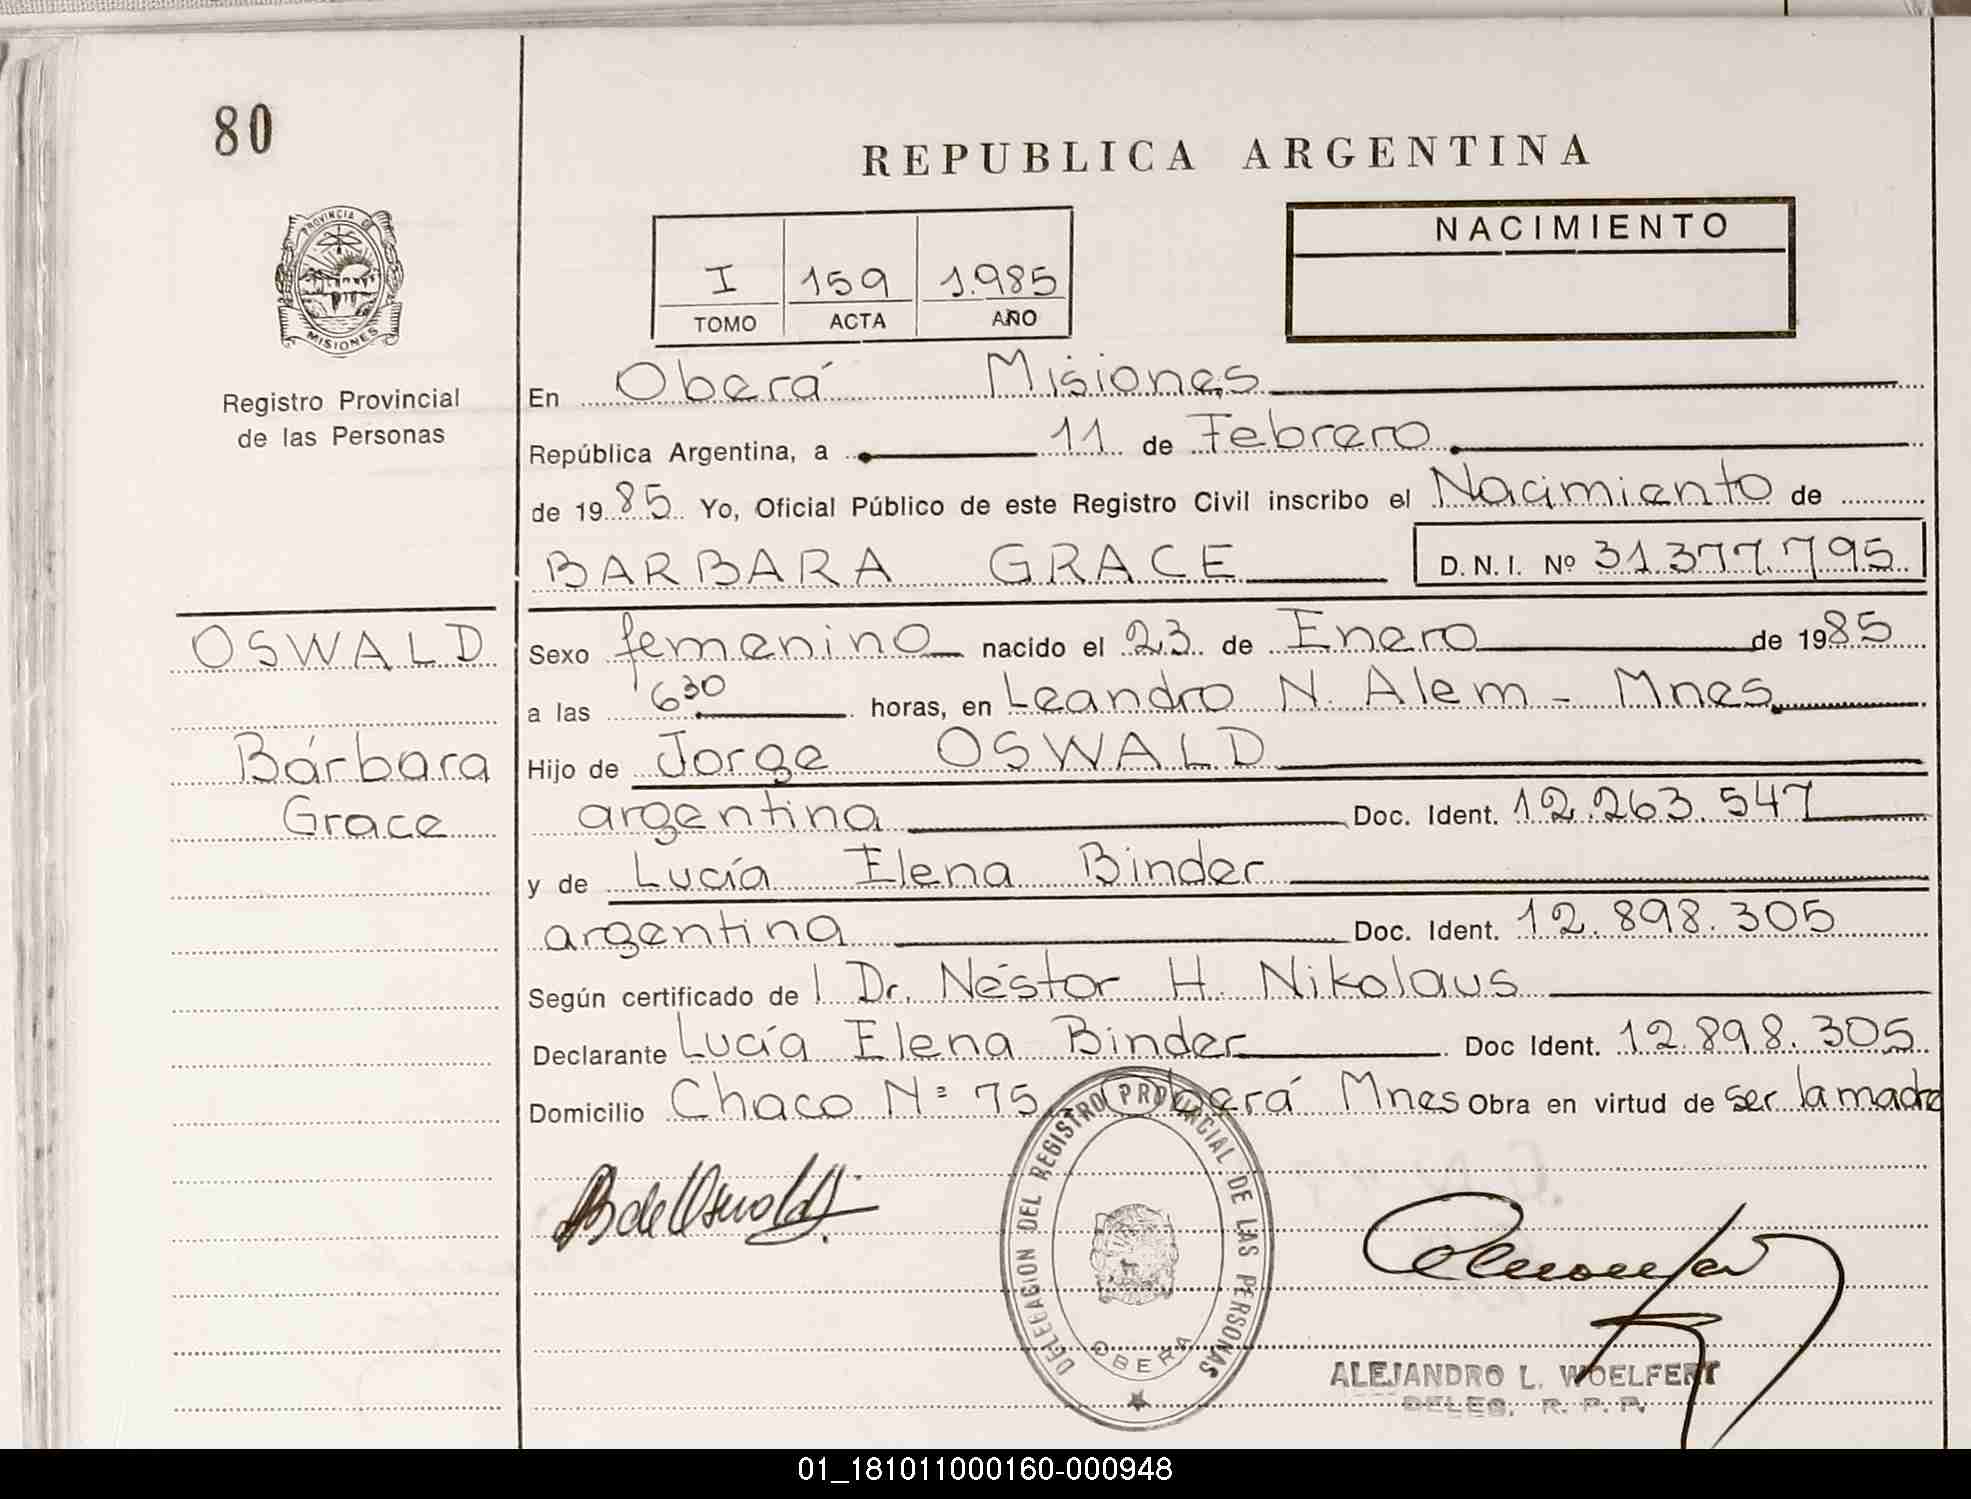 80
REPUBLICA ARGENTINA
PROVINCIA DE
MISIONES
Registro Provincial
de las Personas
I 159 1.985
TOMO ACTA AÑO
NACIMIENTO
En Oberá Misiones
República Argentina, a 11 de Febrero
de 1985 Yo, Oficial Público de este Registro Civil inscribo el Nacimiento de
BARBARA GRACE D.N.I. Nº 31.377.795
OSWALD
Bárbara
Grace
Sexo femenino nacido el 23 de Enero de 1985
a las 6 30 horas, en Leandro N. Alem - Mnes
Hijo de Jorge OSWALD
argentina Doc. Ident. 12.263.547
y de Lucía Elena Binder
argentina Doc. Ident. 12.898.305
Según certificado de l Dr. Néstor H. Nikolaus
Declarante Lucía Elena Binder Doc Ident. 12.898.305
Domicilio Chaco Nº 75 Oberá Mnes Obra en virtud de ser la madre
B de Oswald
DELEGACION DEL REGISTRO PROVINCIAL DE LAS PERSONAS
OBERA
ALEJANDRO L. WOELFERT
DELEG. R. P. P.
01_181011000160-000948